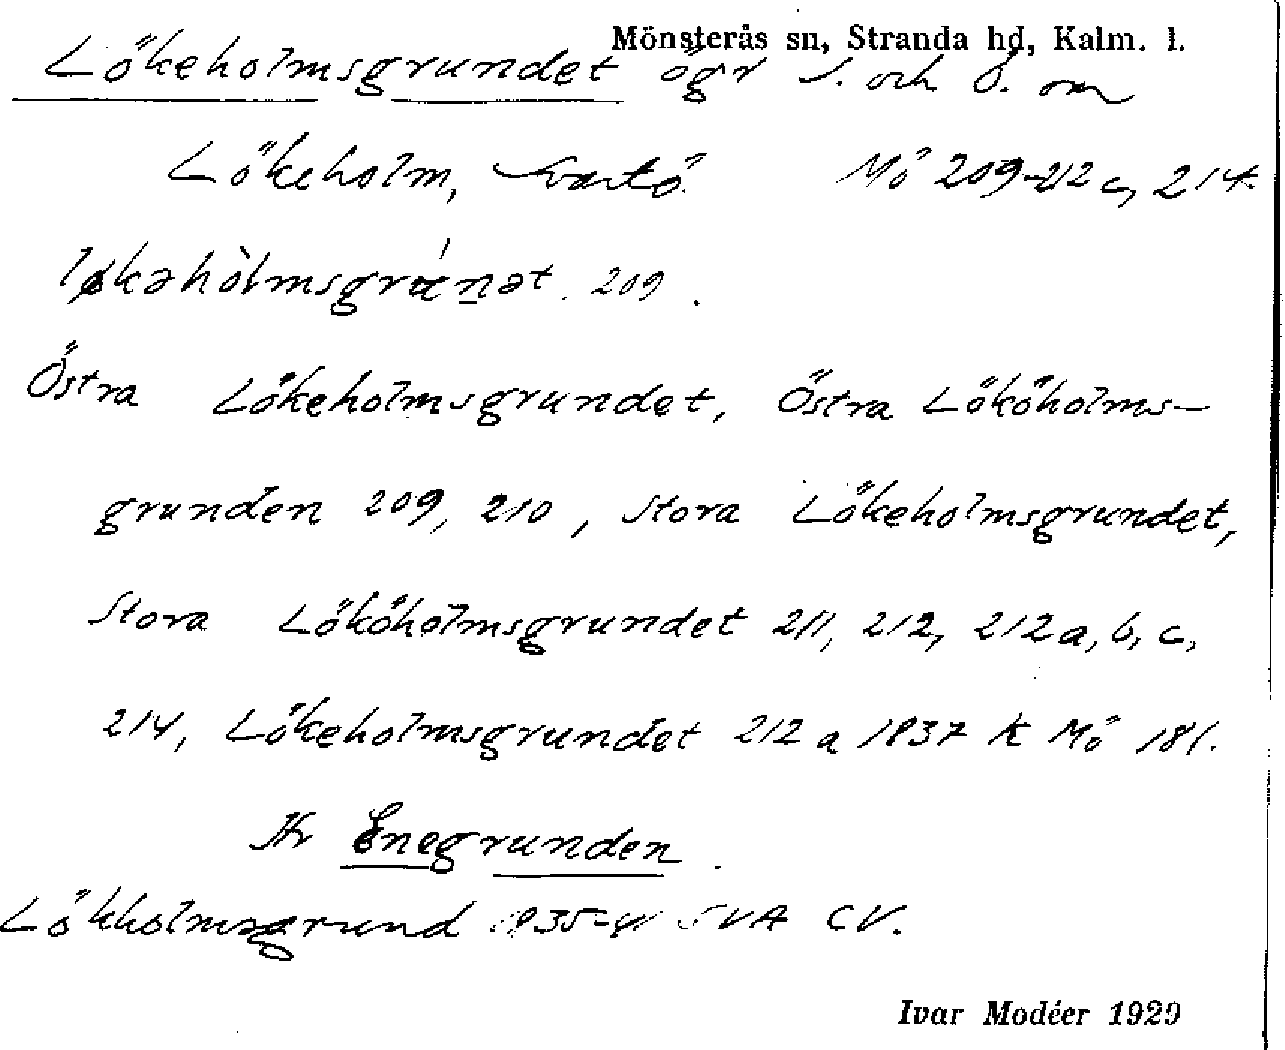 Mönsterås sn, Stranda hd, Kalm. l.
Lökeholmsgrundet ögr S. och Ö. om
Lökeholm, Svartö. Mö 209-212 c, 214.
209.
Östra Lökeholmsgrundet, Östra Lököholms-
grunden 209, 210, Stora Lökeholmsgrundet,
Stora Lököholmsgrundet 211, 212, 212 a, b, c,
214, Lökeholmsgrundet 212 a 1837 K Mö 181.
Jfr Enegrunden.
Lökholmsgrund 1935-41 SVA CV.
Ivar Modéer 1929